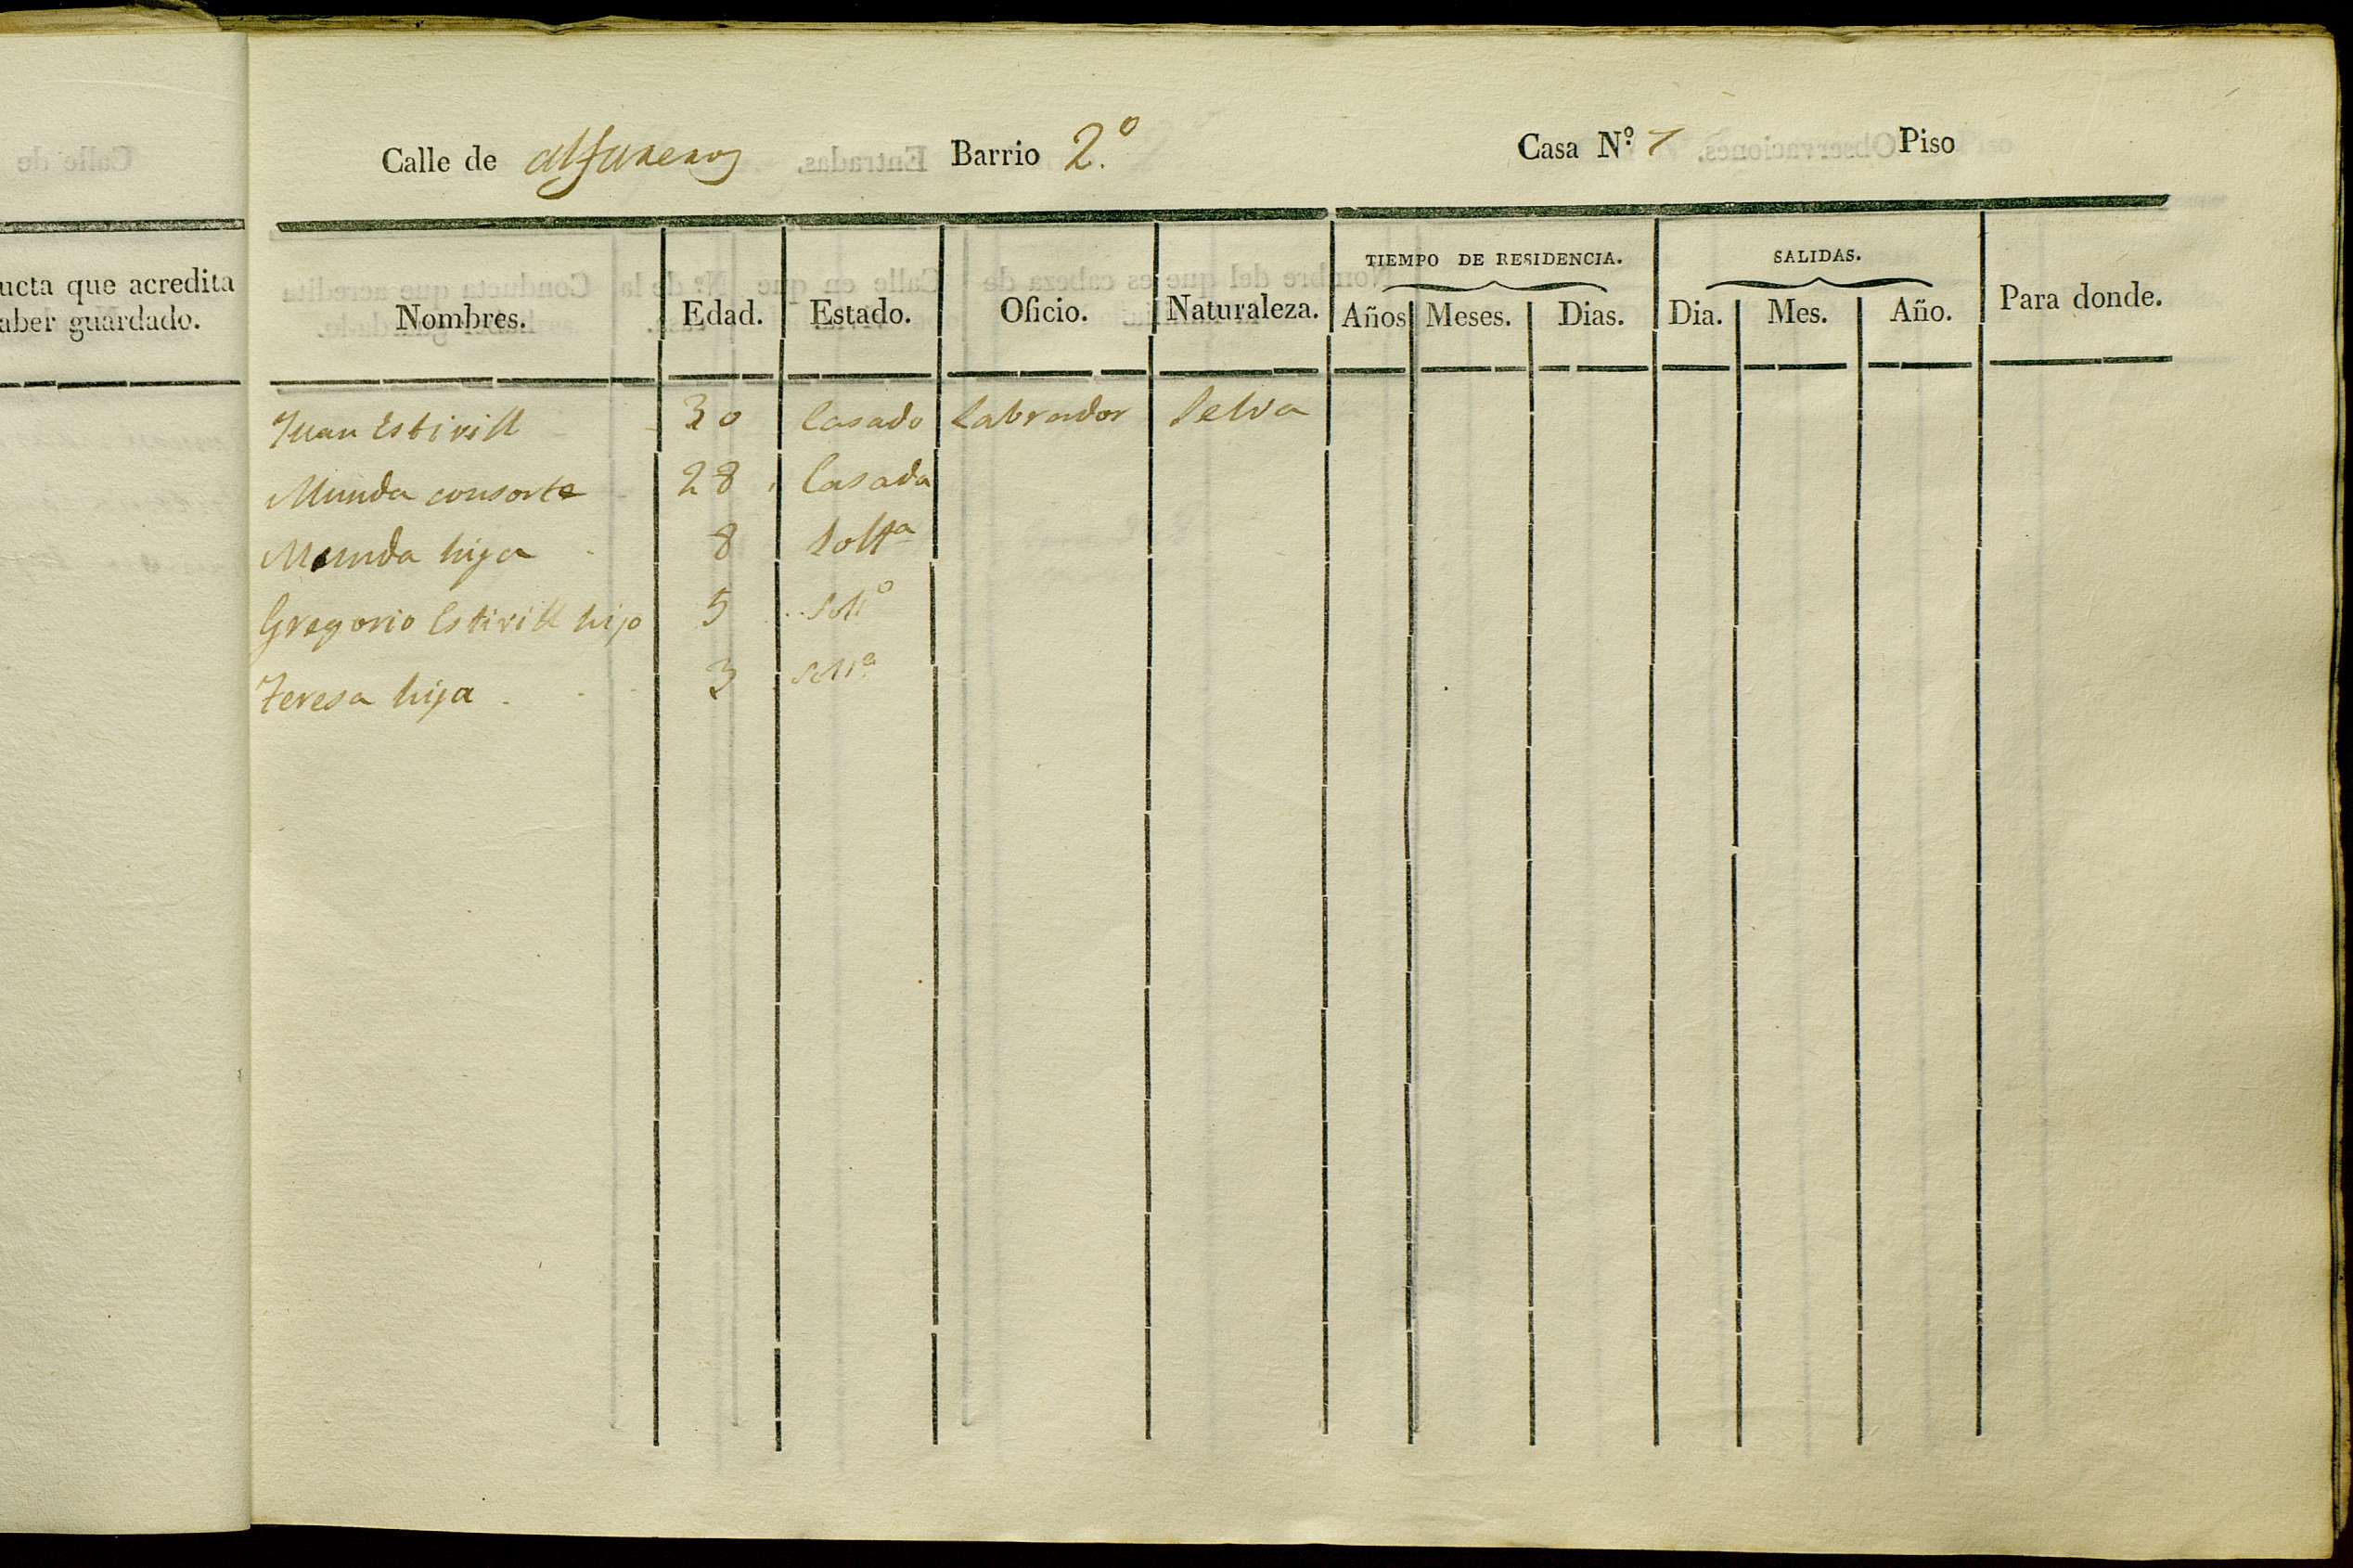 ucta que acredita
aber guardado.
Calle de alfareros Barrio 2.º Casa N.º 7 Piso
TIEMPO DE RESIDENCIA. SALIDAS.
Nombres. Edad. Estado. Oficio. Naturaleza. Años Meses. Dias. Dia. Mes. Año. Para donde.
Juan Estivill 30 Casado Labrador Selva
Munda consorte 28 Casada
Munda hija 8 Soltª
Gregorio Estivill hijo 5 Sol.º
Teresa hija 3 Sol.ª